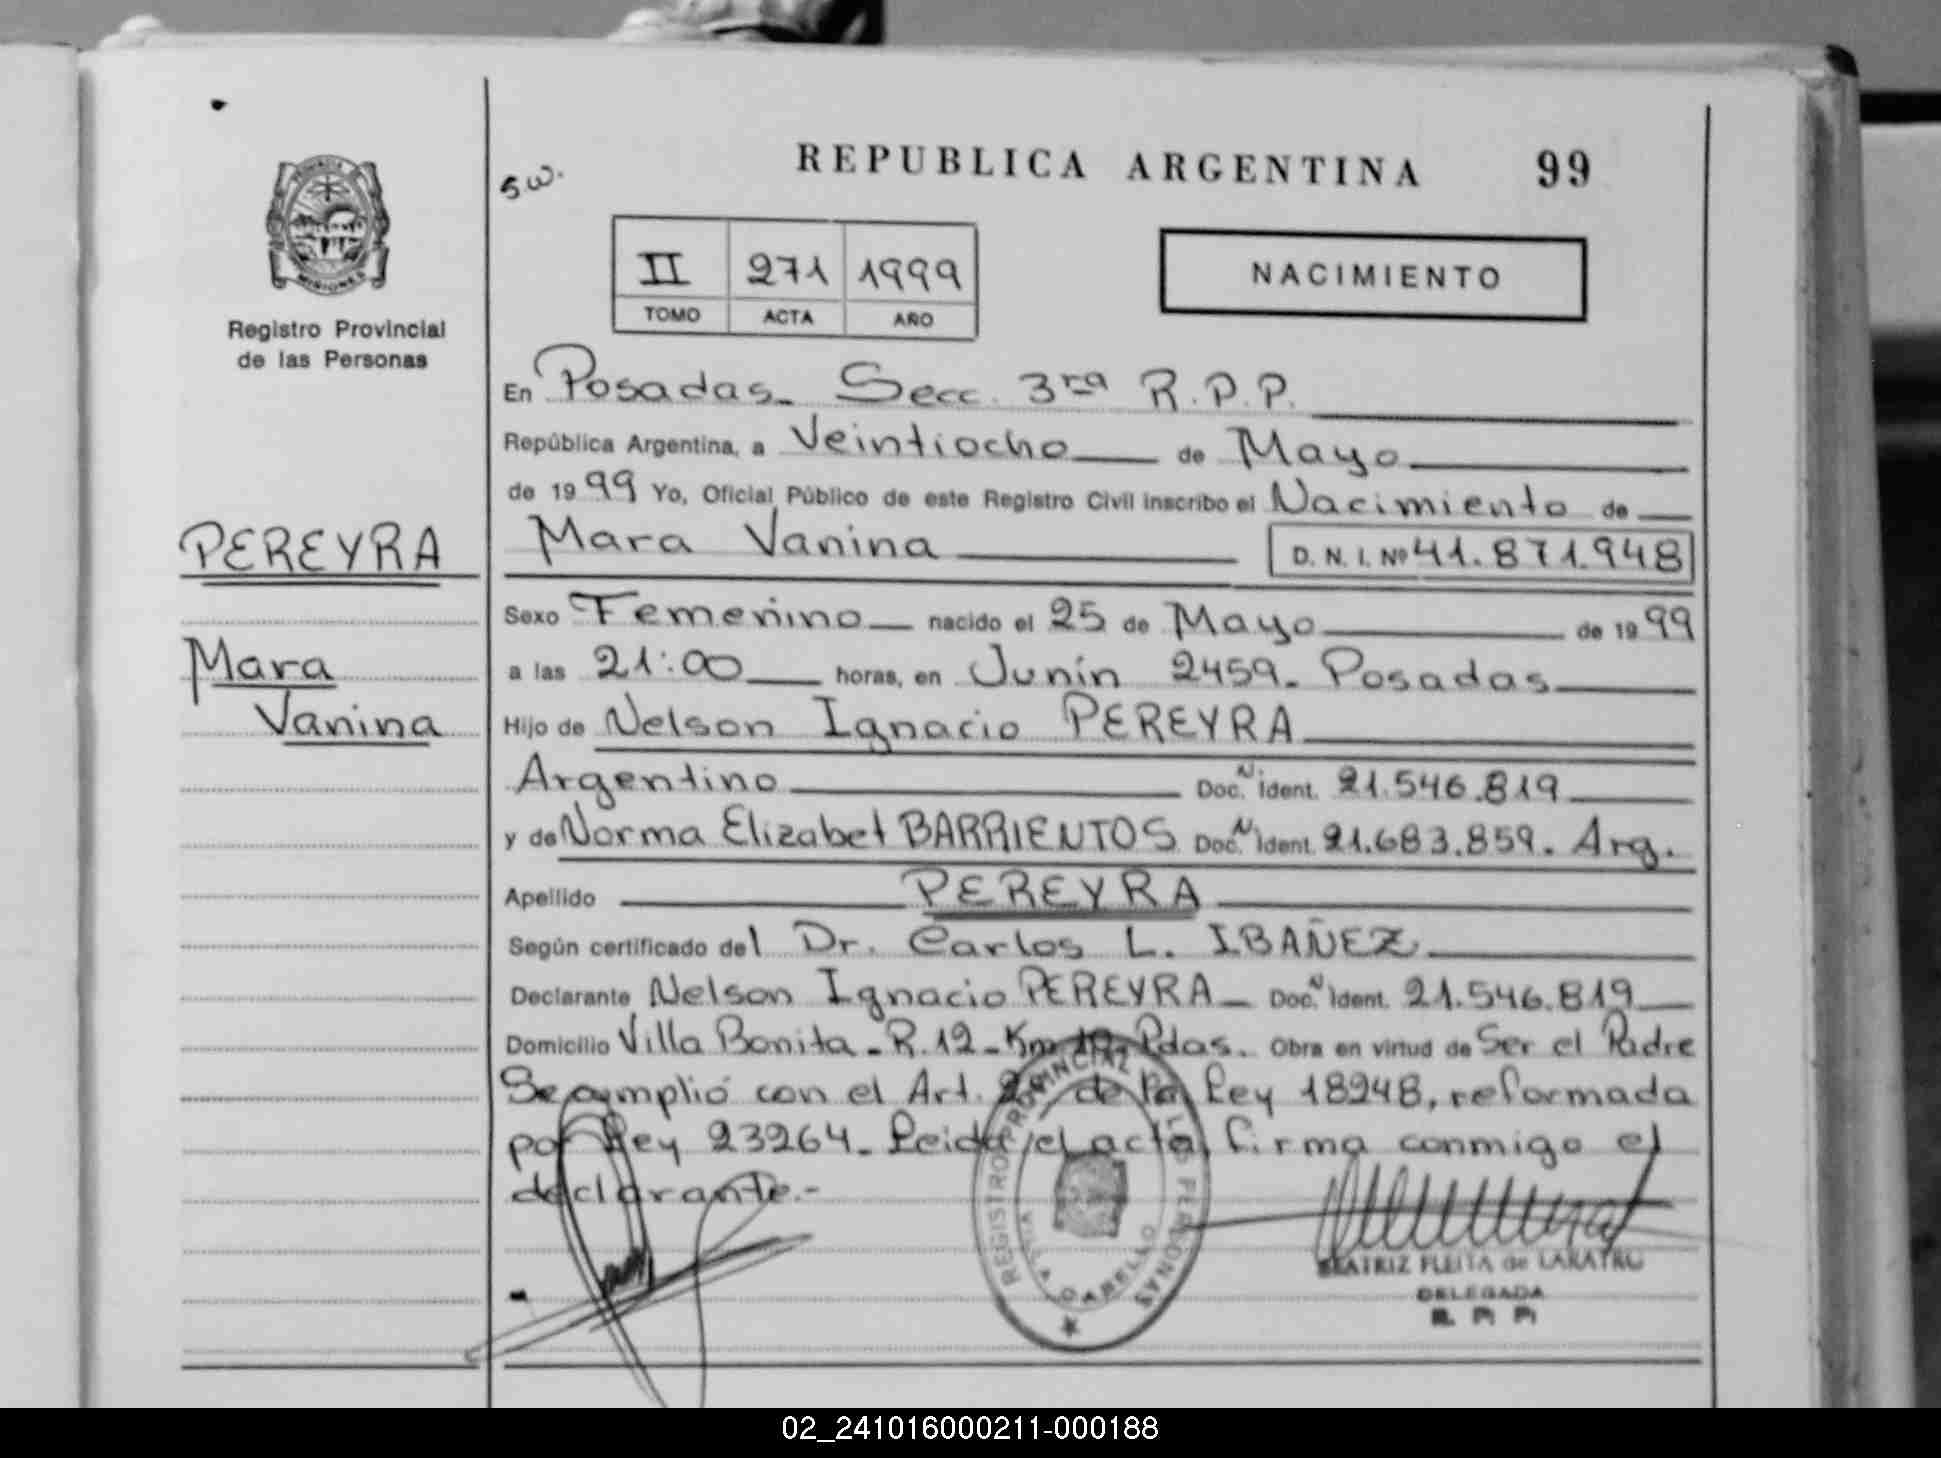 REPUBLICA ARGENTINA 99
5.w.
PROVINCIA DE MISIONES
Registro Provincial
de las Personas
II 271 1999
TOMO ACTA AÑO
NACIMIENTO
En Posadas. Secc. 3ra R.P.P.
República Argentina, a Veintiocho de Mayo
de 1999 Yo, Oficial Público de este Registro Civil inscribo el Nacimiento de
PEREYRA
Mara Vanina D. N. I. Nº 41.871.948
Sexo Femenino nacido el 25 de Mayo de 1999
Mara
Vanina
a las 21:00 horas, en Junín 2459. Posadas
Hijo de Nelson Ignacio PEREYRA
Argentino Doc. N. Ident. 21.546.819
y de Norma Elizabet BARRIENTOS Doc. N. Ident. 21.683.859. Arg.
Apellido PEREYRA
Según certificado del Dr. Carlos L. IBAÑEZ
Declarante Nelson Ignacio PEREYRA Doc. N. Ident. 21.546.819
Domicilio Villa Bonita - R.12 - Km Pdas. Obra en virtud de Ser el Padre
Se cumplió con el Art. de la Ley 18248, reformada
por Ley 23264. Leida el acta, firma conmigo el
declarante.-
REGISTRO PROVINCIAL DE LAS PERSONAS
VILLA CABELLO
BEATRIZ FLEITA de LARATRO
DELEGADA
R. P. P.
02_241016000211-000188